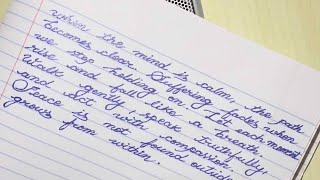 when the mind is calm, the path
becomes clear Suffering fades when
we stop holding on, Let each moment
rise and fall like a breath
walk gently speak truthfully.
and act with compassion
Peace is not found outside
grows from within.